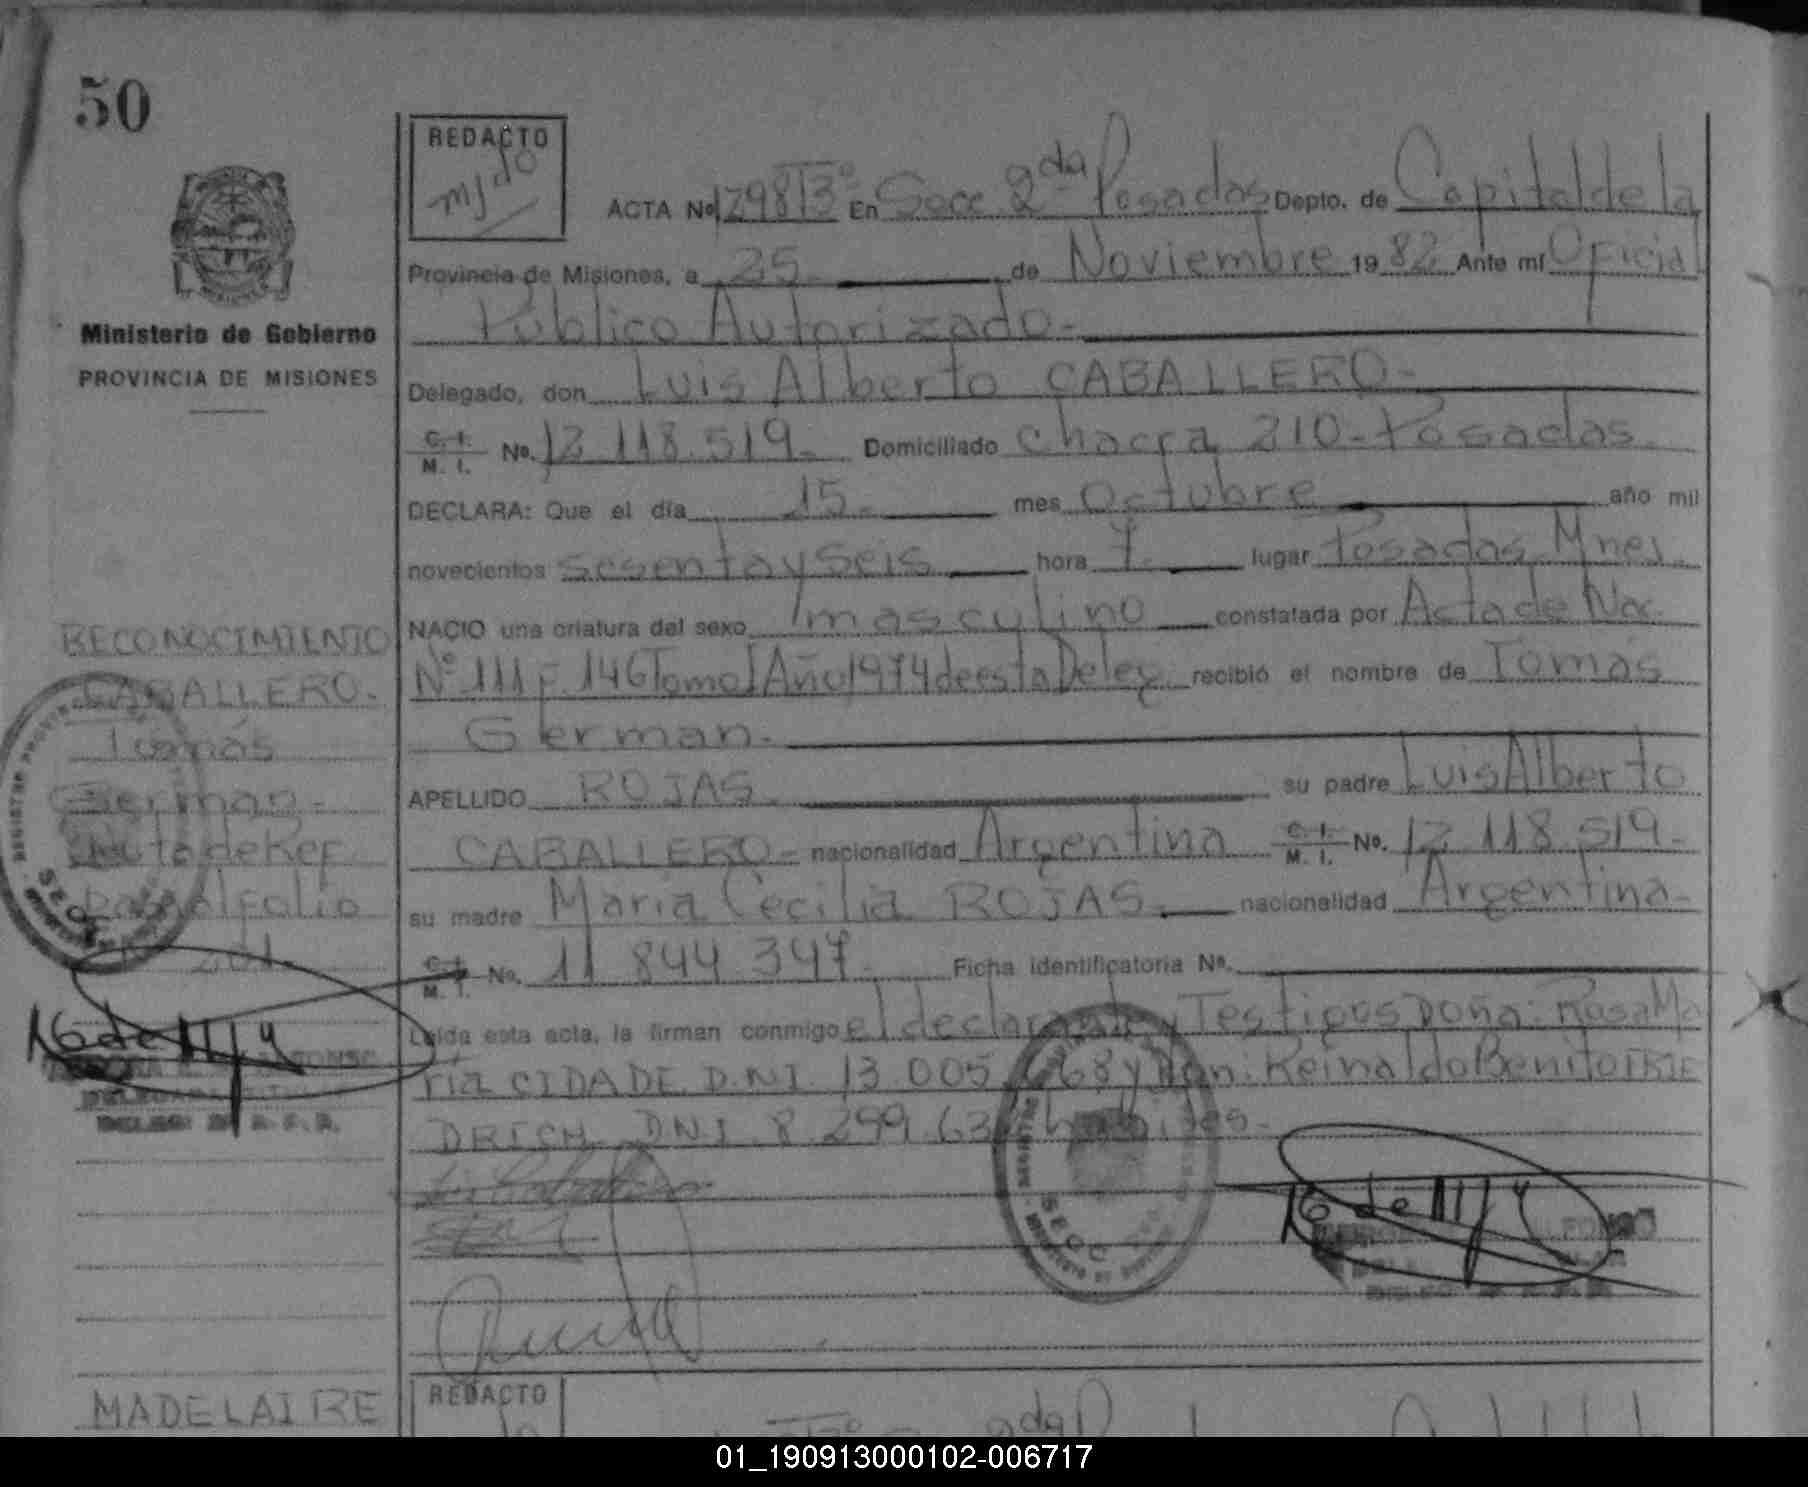 50
REDACTO
ACTA No 1298 Tº 3º En Secc. 2da Posadas Depto. de Capital de la
Provincia de Misiones, a 25 de Noviembre 1982 Ante mí Oficial
Público Autorizado.-
MISIONES
Ministerio de Gobierno
PROVINCIA DE MISIONES
Delegado, don Luis Alberto CABALLERO-
C. I. M. I. No. 12.118.519.- Domiciliado Chacra 210-Posadas.
DECLARA: Que el día 15.- mes Octubre año mil
novecientos sesenta y seis hora 7. lugar Posadas Mnes.
NACIO una criatura del sexo masculino constatada por Acta de Nac.
Nº 111 F. 146 Tomo I Año 1974 de esta Deleg. recibió el nombre de Tomás
German.-
APELLIDO ROJAS. su padre Luis Alberto
CABALLERO- nacionalidad Argentina C. I. M. I. No. 12.118.519-
su madre María Cecilia ROJAS. nacionalidad Argentina-
C. I. M. I. No. 11.844.347.- Ficha identificatoria No.
Leída esta acta, la firman conmigo el declarante y Testigos Doña: Rosa Ma
ría CIDADE D.N.I. 13.005. 68 y Don: Reinaldo Benito FRIE
DRICH DNI. 8.299.63 hábiles.-
RECONOCIMIENTO
CABALLERO.
Tomás
German-
Nota de Ref.
al folio
Nº 201.-
16 de
16 de
MADELAIRE
REDACTO
01_190913000102-006717